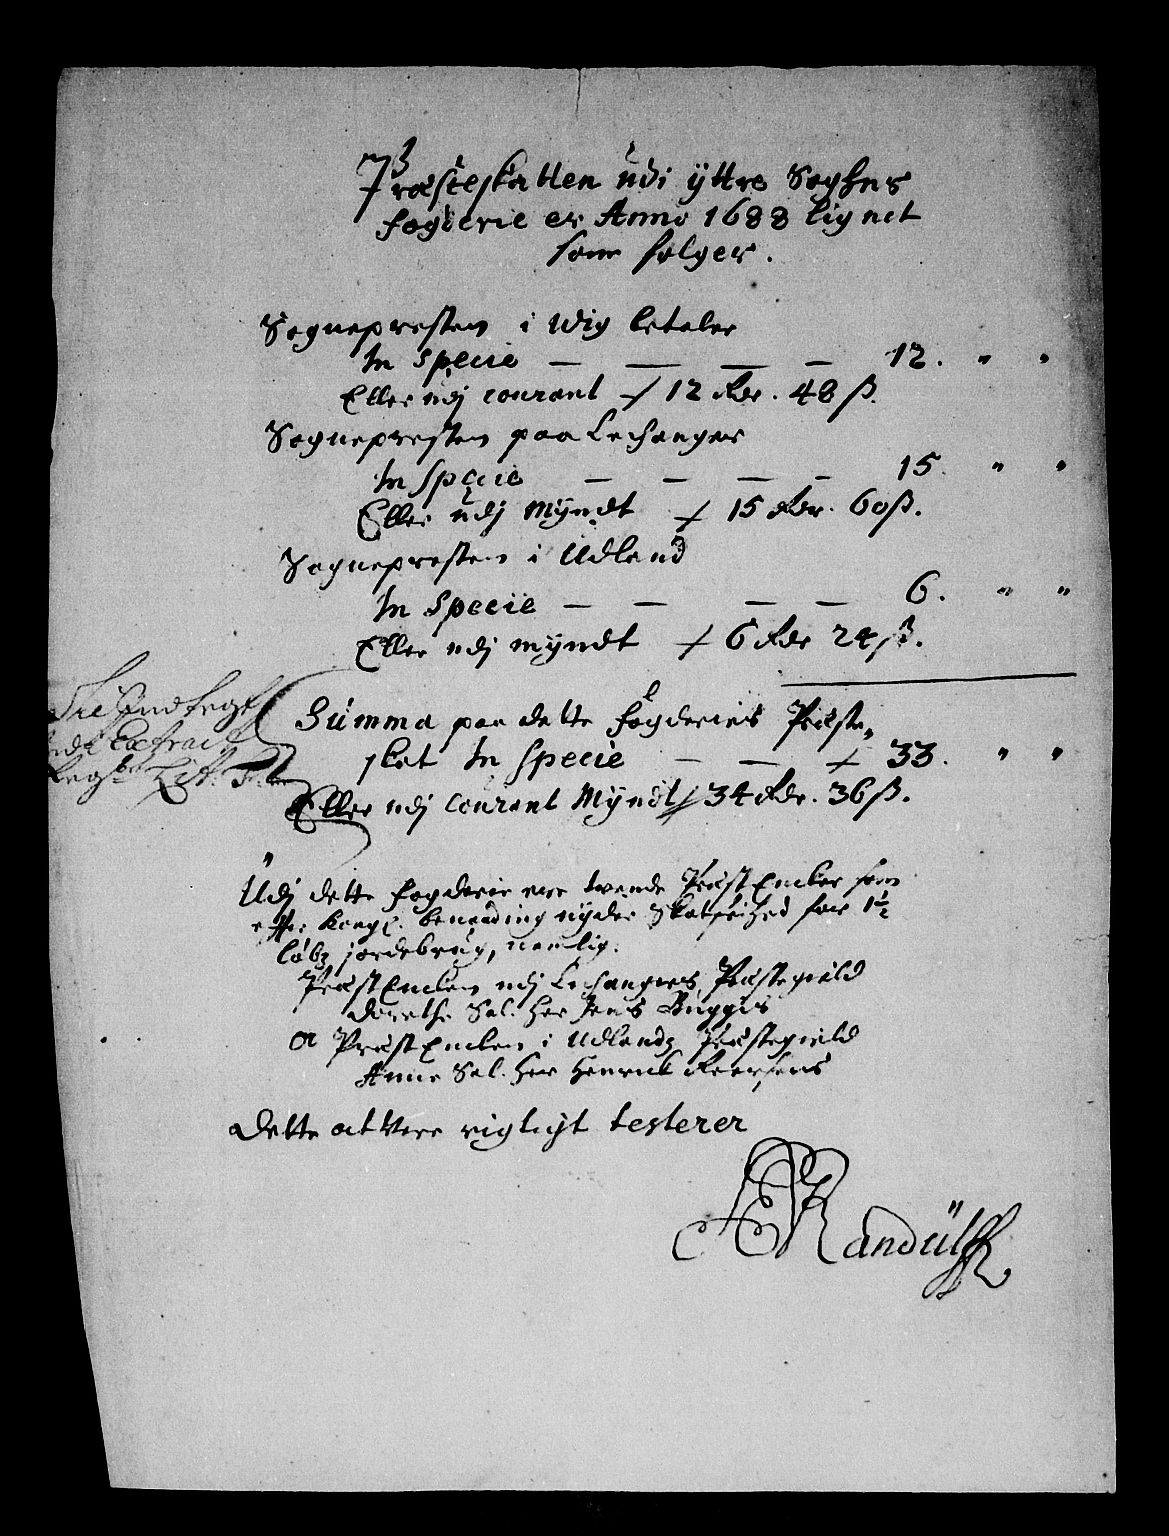 Præsteskatten udi ÿttre Soghns
fogderie er Anno 1688 lignet
som følger.
Sognepresten i Wiig betaler
In Specie — — — — 12. " "
Eller udj courant ⨍ 12 Rdr. 48 ß.
Sognepresten paa Lechanger
In Specie — — — — 15. " "
Eller udj Mÿndt ⨍ 15 Rdr. 60 ß.
Sognepresten i Udland
In Specie — — — — 6. " "
Eller udj mÿndt ⨍ 6 Rdr 24 ß.
Summa paa dette fogderies Præste
skat In Specie — — ⨍ 33. " "
Eller udj Courant Mÿndt ⨍ 34 Rdr. 36 ß.
Extract
Lit:
Udj dette fogderie ere tvende PræstEncker som
effter Kongl. benaading nÿder Skatfrihed for 1½
løbz jordebrug, nemlig.
PræstEncken udj Lechangers Præstegield
Dorethe Sal. Her Jens Buggis
Og PræstEncken i Udlandz Præstegield
Anne Sal. Her Henrich
Dette at Vere rigtigt testerer
Randulff